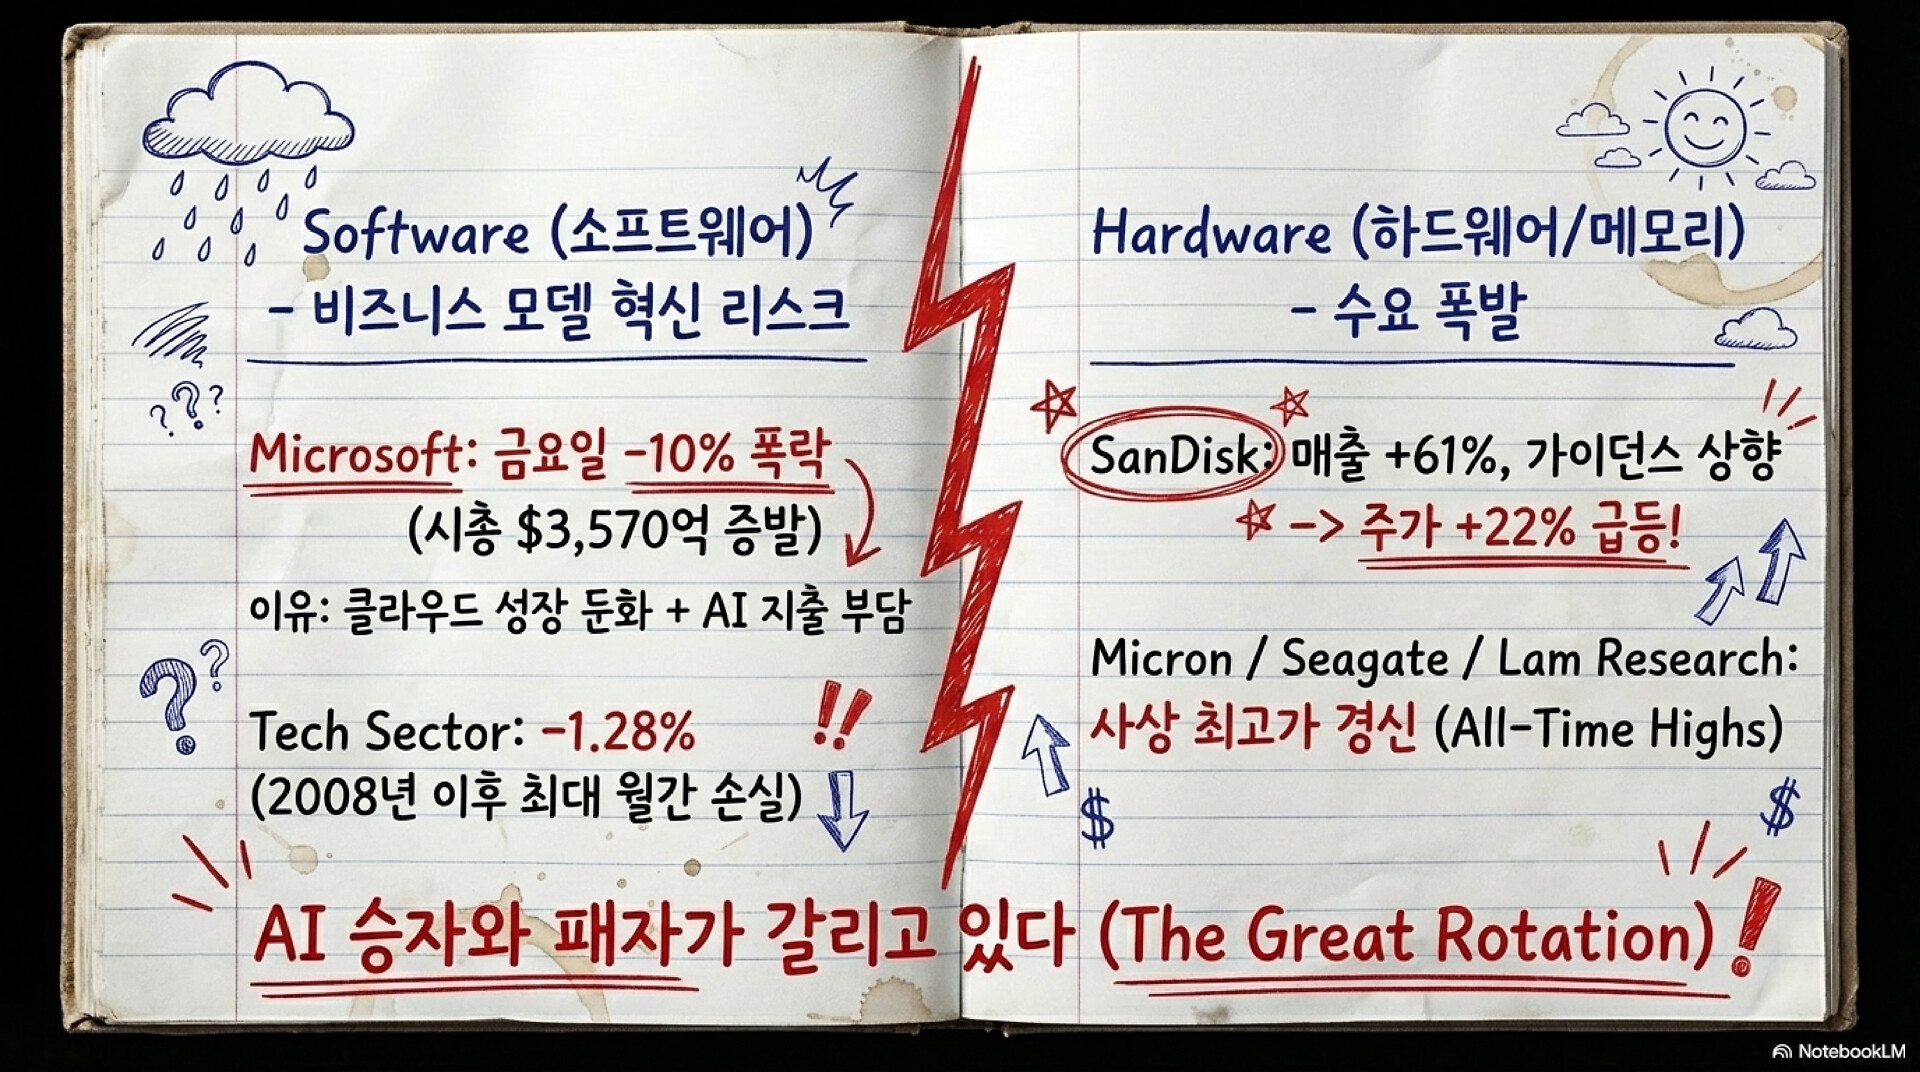 Software (소프트웨어)
- 비즈니스 모델 혁신 리스크
Microsoft: 금요일 -10% 폭락
(시총 $3,570억 증발)
이유: 클라우드 성장 둔화 + AI 지출 부담
Tech Sector: -1.28%
(2008년 이후 최대 월간 손실)
Hardware (하드웨어/메모리)
- 수요 폭발
SanDisk: 매출 +61%, 가이던스 상향
-> 주가 +22% 급등!
Micron / Seagate / Lam Research:
사상 최고가 경신 (All-Time Highs)
AI 승자와 패자가 갈리고 있다 (The Great Rotation)!
NotebookLM